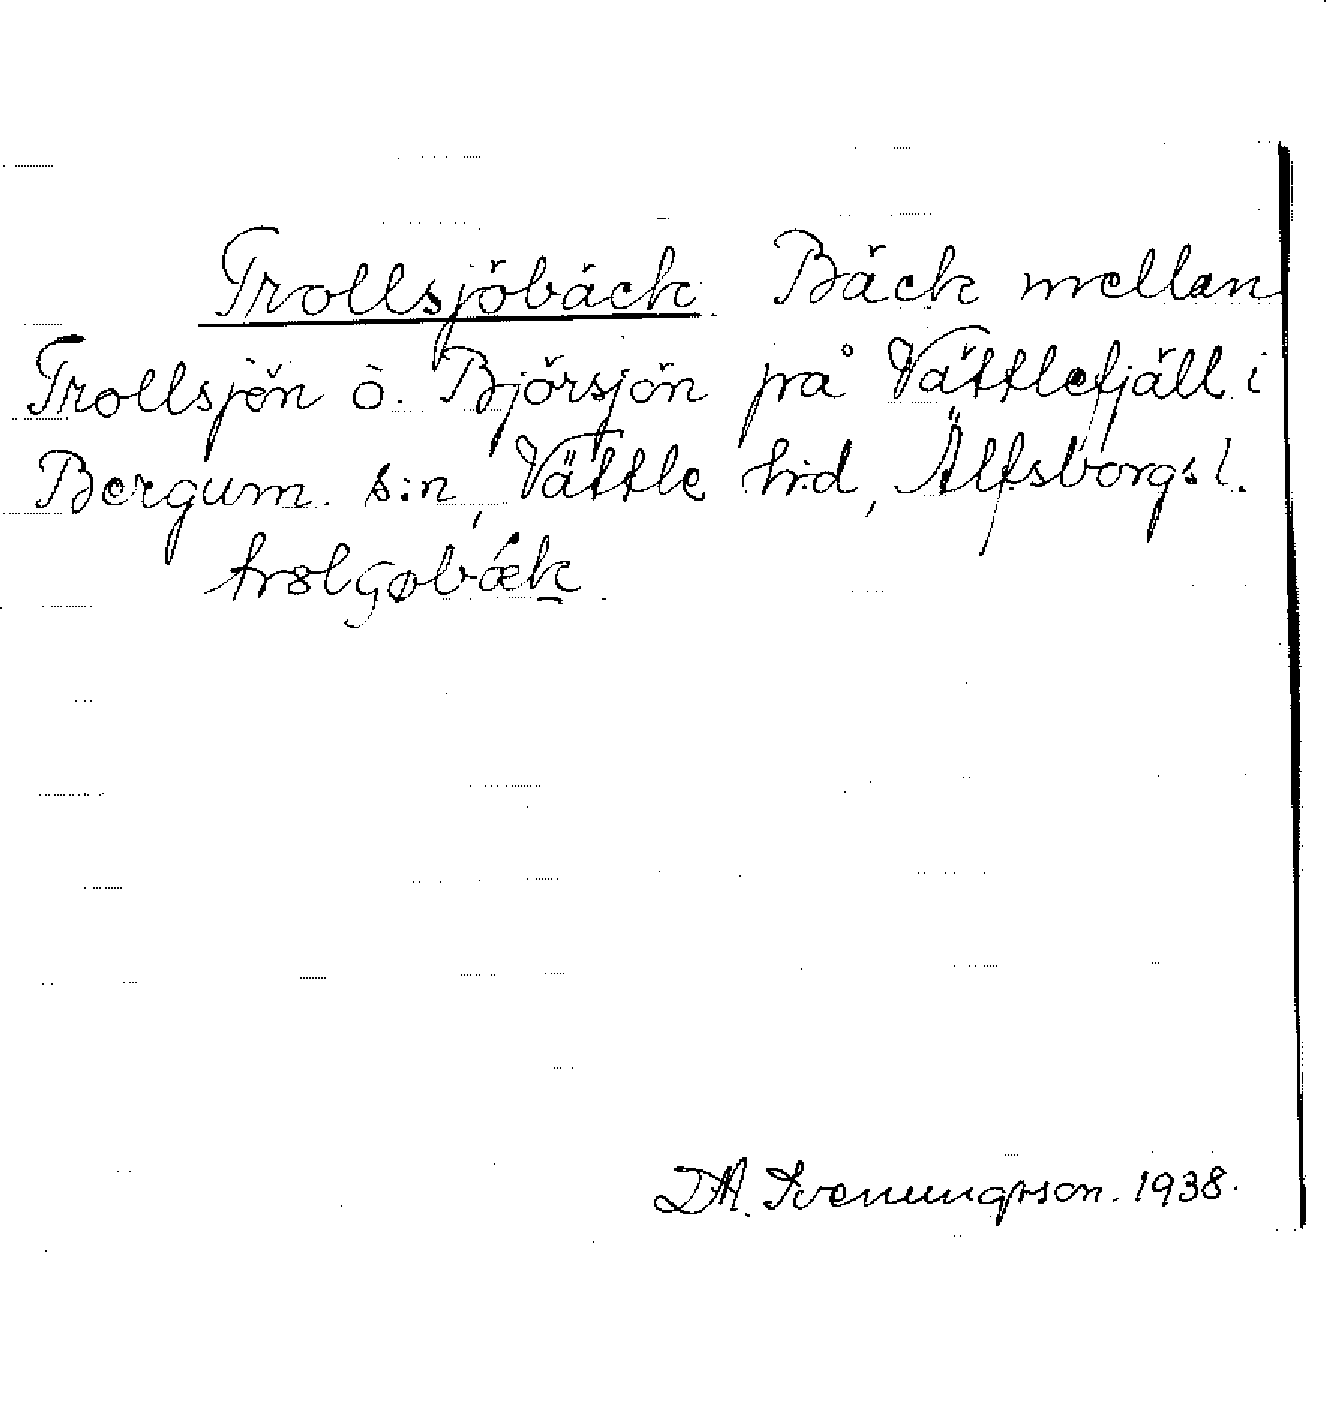 Trollsjöbäck. Bäck mellan
Trollsjön o. Björsjön på Vättlefjäll i
Bergum s:n, Vättle hrd, Älfsborgs l.
D.A. Svenungsson. 1938.